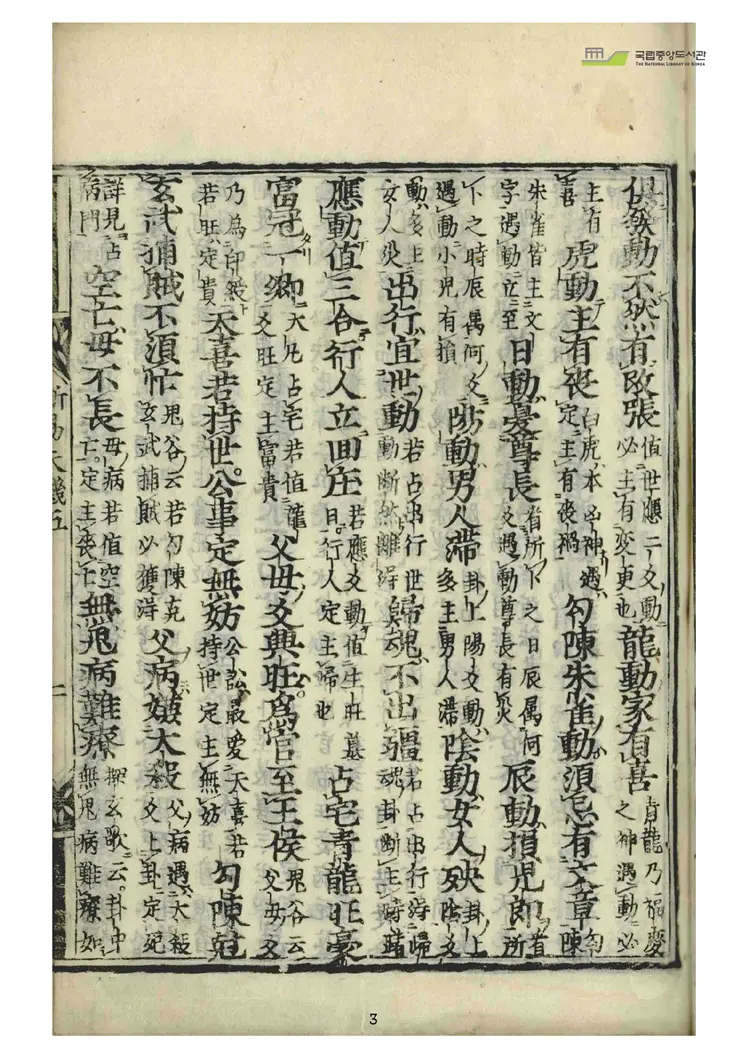 국립중앙도서관
THE NATIONAL LIBRARY OF KOREA
俱發動不然有改張 值世應二爻動必主有変更也 龍動家有喜 青龍乃福慶之神遇動必
主有喜 虎動主有喪 白虎本凶神遇定主有喪禍 勾陳朱雀動須忌有文章 勾陳
朱雀皆主文字遇動立至 日動憂尊長 省所卜之日辰属何爻遇動尊長有災 辰動損児郎 省所
卜之時辰属何爻遇動小児有損 陽動男人滯 卦上陽爻動多主男人滯 陰動女人殃 卦上陰爻
動多主女人災 出行宜世動 若占出行世動断然離得 歸魂不出疆 若占出行得歸魂卦断主時
應動值三合行人立回庄 若應爻動值生旺墓日行人定主歸也 占宅青龍旺豪
富冠一郷 大凡占宅若值龍爻旺定主富貴 父母爻興旺為官至王侯 鬼谷云父母爻
乃為印綬若旺定貴 天喜若持世公事定無妨 公訟最爱天喜若持世定主無妨 勾陳剋
玄武捕賊不須忙 鬼谷云若勾陳克玄武捕賊必獲得 父病嫌大殺 父病遇大殺爻上卦定死
詳見占病門 空亡母不長 母病若值空亡定主喪亡 無鬼病難療 探玄歌云卦中無鬼病難療如
二
3